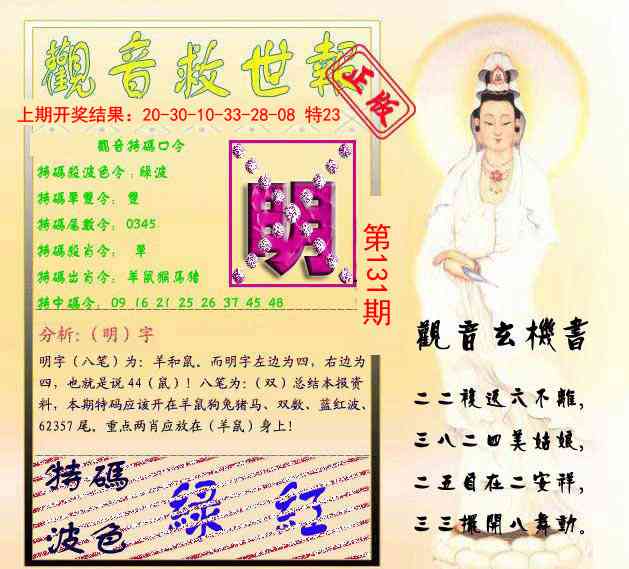 觀音救世報
正版
上期开奖结果：20-30-10-33-28-08 特23
觀音特碼口令
特碼殺波色令：綠波
特碼單雙令： 雙
特碼尾數令： 0345
特碼殺肖令： 單
特碼出肖令： 羊鼠猴馬豬
特中碼令： 09 16 21 25 26 37 45 48
明
第131期
分析:（明）字
明字（八笔）为：羊和鼠。而明字左边为四，右边为
四，也就是说 44（鼠）！八笔为：（双）总结本报资
料，本期特码应该开在羊鼠狗兔猪马、双数、蓝红波、
62357 尾。重点两肖应放在（羊鼠）身上！
特碼
波色
綠 紅
觀音玄機書
二二複返六不離,
三八二四美姑娘,
二五自在二安祥,
三三擺開八舞動。